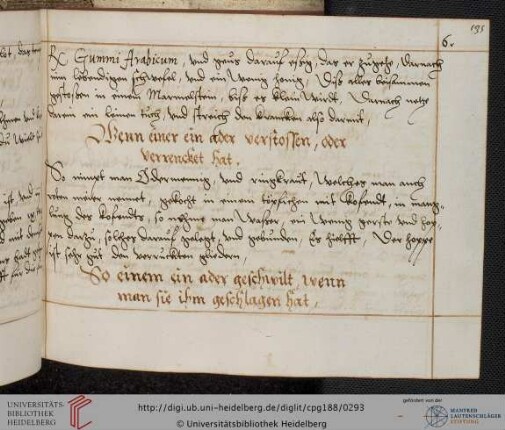 195
6.
Rx Gummi Arabicum, und geus darauf essig, das er zugehe, darnach
nim lebendigen schwefel, und ein wenig honig, Diß alles beisammen
gestossen in einem Marmelstein, biß es klein wirdt, Darnach netz
darein ein leinen tuch, und streich den krancken also darmit,
Wenn einer ein ader verstossen, oder
verrencket hat.
So nimpt man Odermennig, und ringkraut, welches man auch
nennet, gekocht in einem töpfichen mit kofendt, in mang-
lung des kofendts, so nehme man Wasser, ein wenig gerste und hop-
pen darzu, solches darauf gelegt, und gebunden, Es hilfft, Der hoppe
ist sehr gut den verruckten gliedern,
So einem ein ader geschwilt, wenn
man sie ihm geschlagen hat,
UNIVERSITÄTS-
BIBLIOTHEK
HEIDELBERG
http://digi.ub.uni-heidelberg.de/diglit/cpg188/0293
© Universitätsbibliothek Heidelberg
gefördert von der
MANFRED
LAUTENSCHLÄGER
STIFTUNG